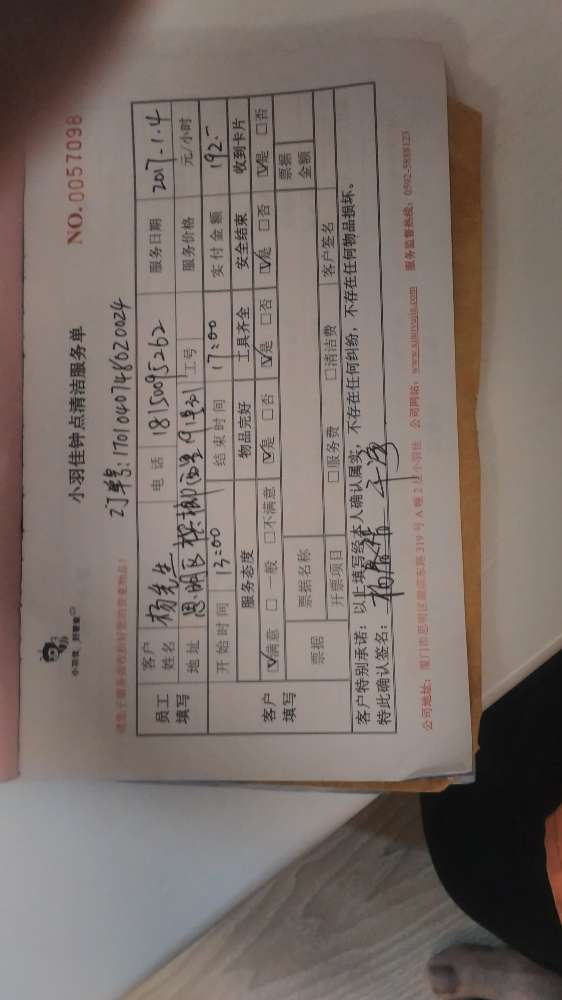 小羽佳 好管家
小羽佳钟点清洁服务单
NO.0057098
订单号:1701040748020024
员工填写
客户姓名 杨先生 电话 18150095262 服务日期 2017.1.4
地址 思明区 工号 服务价格 元/小时
开始时间 13:00 结束时间 17:00 实付金额 192.-
客户填写
服务态度 物品完好 工具齐全 安全结束 收到卡片
☑满意 □一般 □不满意 ☑是 □否 ☑是 □否 ☑是 □否 ☑是 □否
票据 票据名称 票据金额
开票项目 □服务费 □清洁费 客户签名
客户特别承诺：以上填写经本人确认属实，不存在任何纠纷，不存在任何物品损坏。
特此确认签名：
公司地址：厦门市思明区湖滨东路319号A幢2层小羽佳 公司网站：www.xiaoyujia.com 服务监督热线：0592-5888123